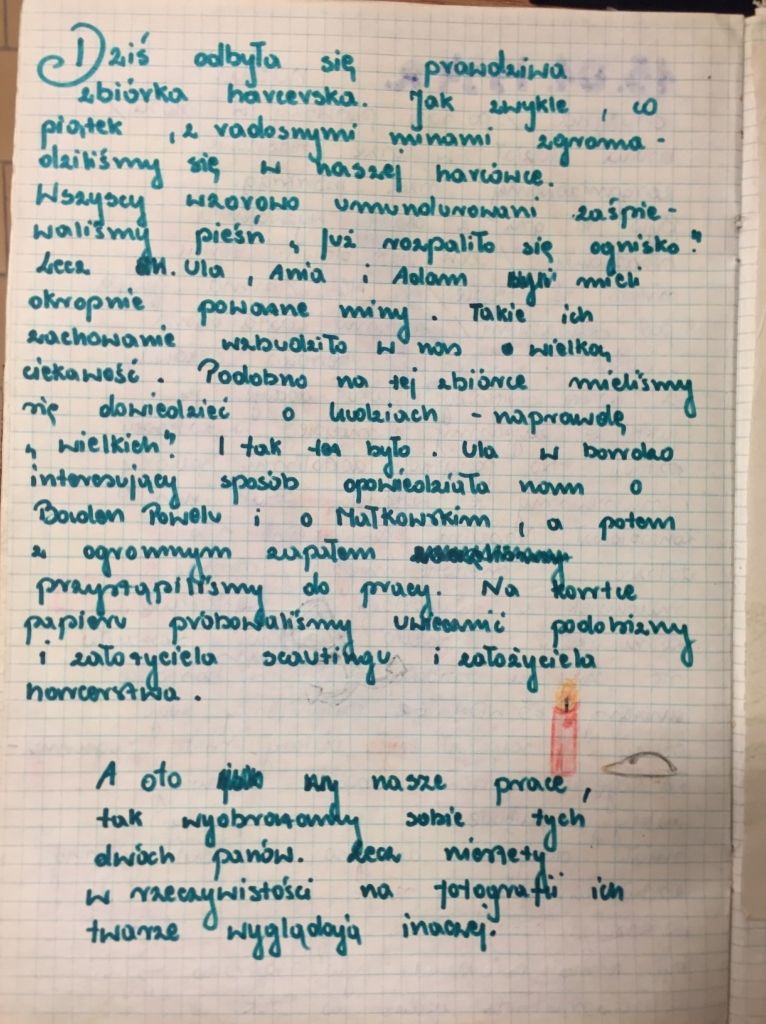 Dziś odbyła się prawdziwa
zbiórka harcerska. Jak zwykle, co
piątek, z radosnymi minami zgroma-
dziliśmy się w naszej harcówce.
Wszyscy wzorowo umundurowani zaśpie-
waliśmy pieśń „Już rozpaliło się ognisko."
Lecz dh. Ula, Ania i Adam mieli
okropnie poważne miny. Takie ich
zachowanie wzbudziło w nas wielką
ciekawość. Podobno na tej zbiórce mieliśmy
się dowiedzieć o ludziach - naprawdę
„wielkich". I tak też było. Ula w bardzo
interesujący sposób opowiedziała nam o
Baden Powelu i o Małkowskim, a potem
z ogromnym zapałem
przystąpiliśmy do pracy. Na kartce
papieru próbowaliśmy uwiecznić podobizny
i założyciela scautingu i założyciela
harcerstwa.
A oto nasze prace,
tak wyobrażamy sobie tych
dwóch panów. Lecz niestety
w rzeczywistości na fotografii ich
twarze wyglądają inaczej.